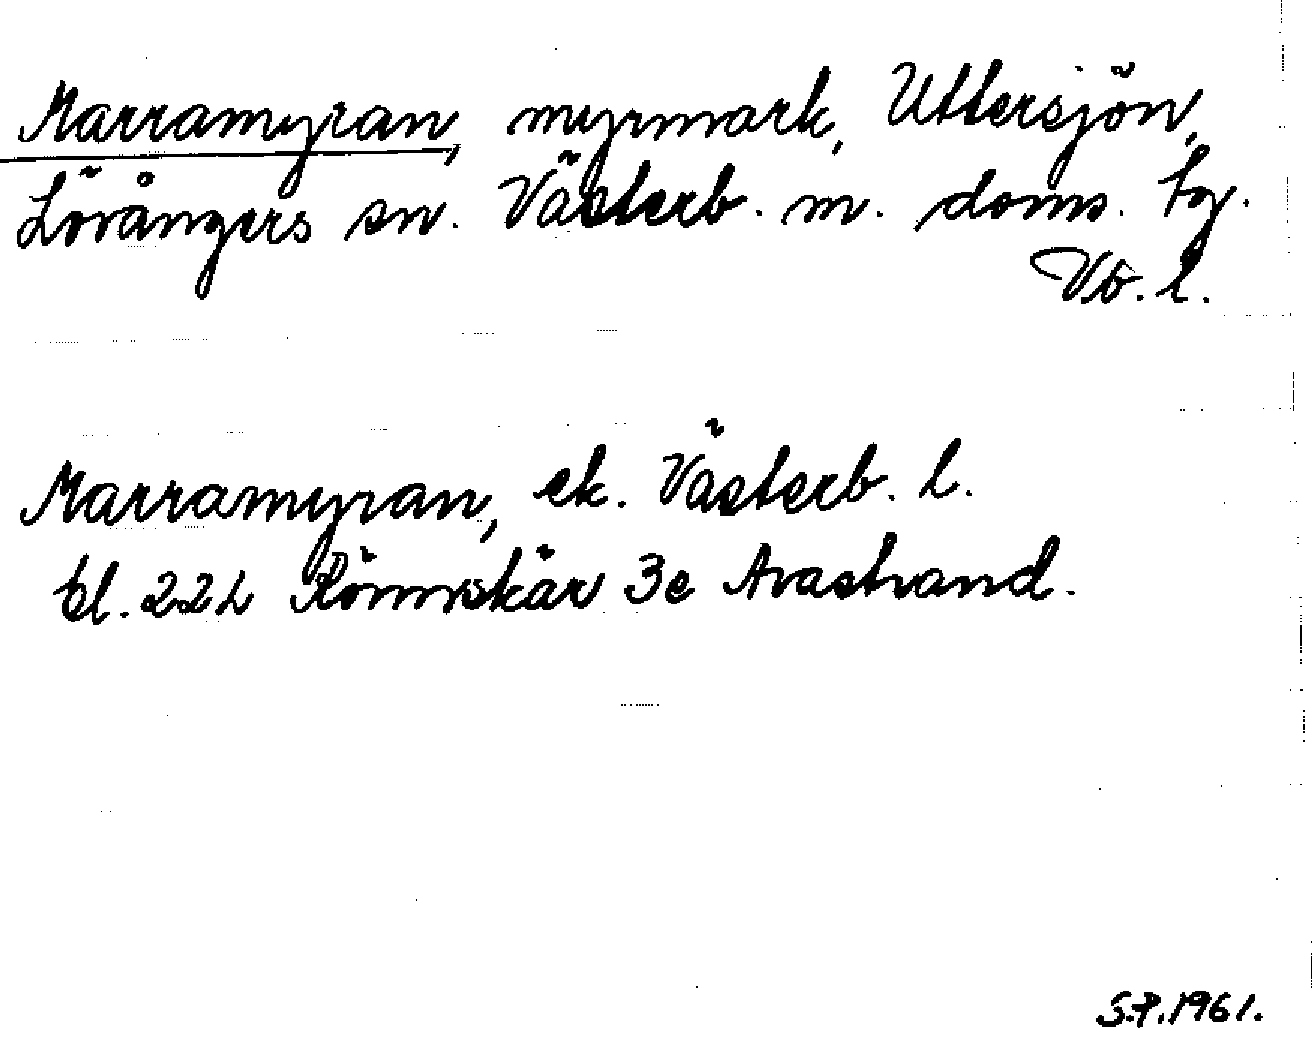 Marramyran, myrmark, Uttersjön,
Lövångers sn. Västerb. m. doms. tg.
Vb. l.
Marramyran, ek. Västerb. l.
bl. 22L Rönnskär 3e Avastrand.
S.P. 1961.